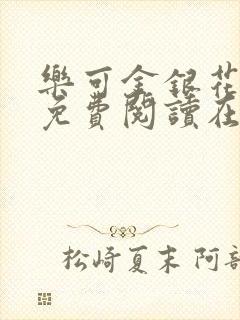 樂可金銀花
免費閱讀在
松崎夏末 阿部